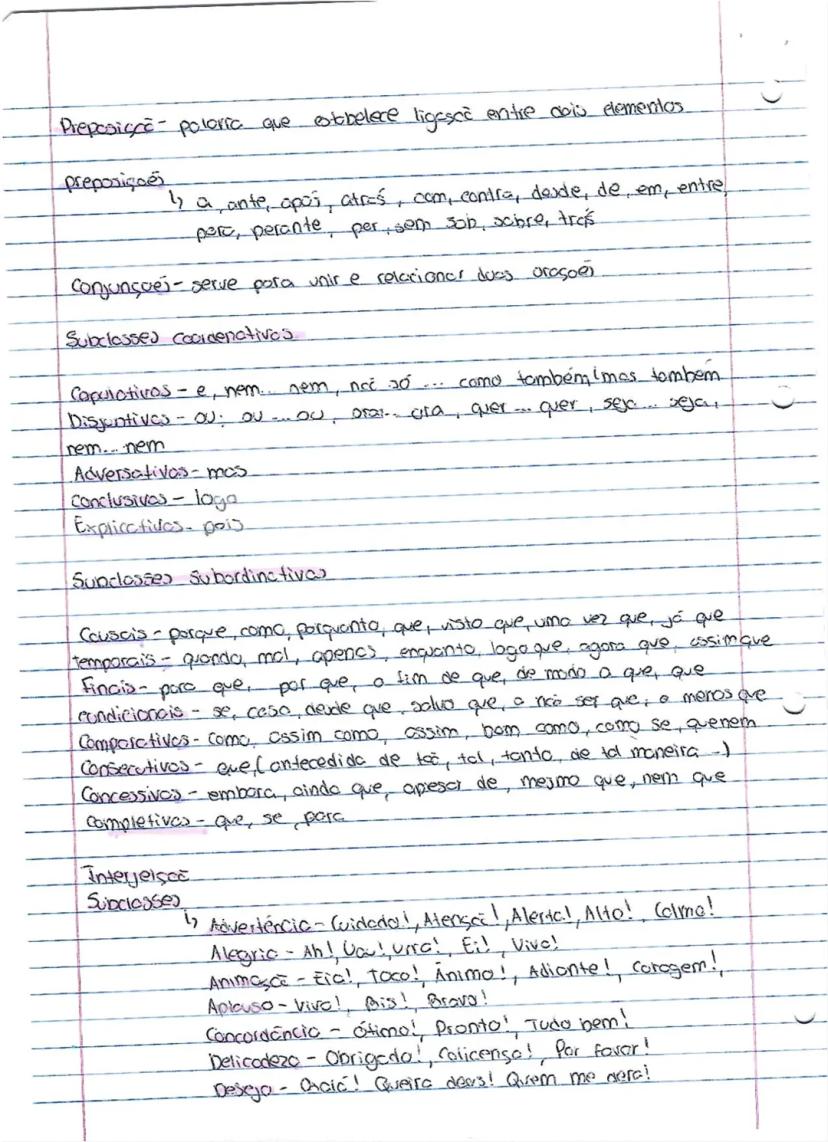 Preposiçcẽ - palavra que estabelece ligaçcẽ entre dois elementos
preposiçoẽs
↳ a, ante, após, atrás, com, contra, desde, de, em, entre,
para, perante, per, sem sob, sobre, trás
Conjunçoẽs - serve para unir e relacionar duas oraçoẽs
Subclasses Coordenativas
Copulativas - e, nem... nem, não só ... como também (mas também
Disjuntivas - ou; ou ... ou, ora... ora, quer ... quer, seja... seja,
nem... nem
Adversativas - mas
conclusivas - logo
Explicativas - pois
Subclasses Subordinativas
Causais - porque, como, porquanto, que, visto que, uma vez que, já que
temporais - quando, mal, apenas, enquanto, logo que, agora que, assim que
Finais - para que, por que, a fim de que, de modo a que, que
condicionais - se, caso, desde que, salvo que, a não ser que, a menos que
Comparativas - como, assim como, assim, bem como, como se, quenem
Consecutivas - que (antecedido de tão, tal, tanto, de tal maneira -)
Concessivas - embora, ainda que, apesar de, mesmo que, nem que
completivas - que, se, para
Interjeiscão
Subclasses
↳ Advertência - Cuidado!, Atensçã!, Alerta!, Alto!, Calma!
Alegria - Ah!, Uau!, urra!, Ei!, Viva!
Animaçcã - Eia!, Toca!, Ânimo!, Adiante!, Coragem!,
Aplauso - Viva!, Bis!, Bravo!
Concordância - Ótimo!, Pronto!, Tudo bem!
Delicadeza - Obrigado!, Colicensa!, Por favor!
Desejo - Oxalá! Queira deus! Quem me dera!